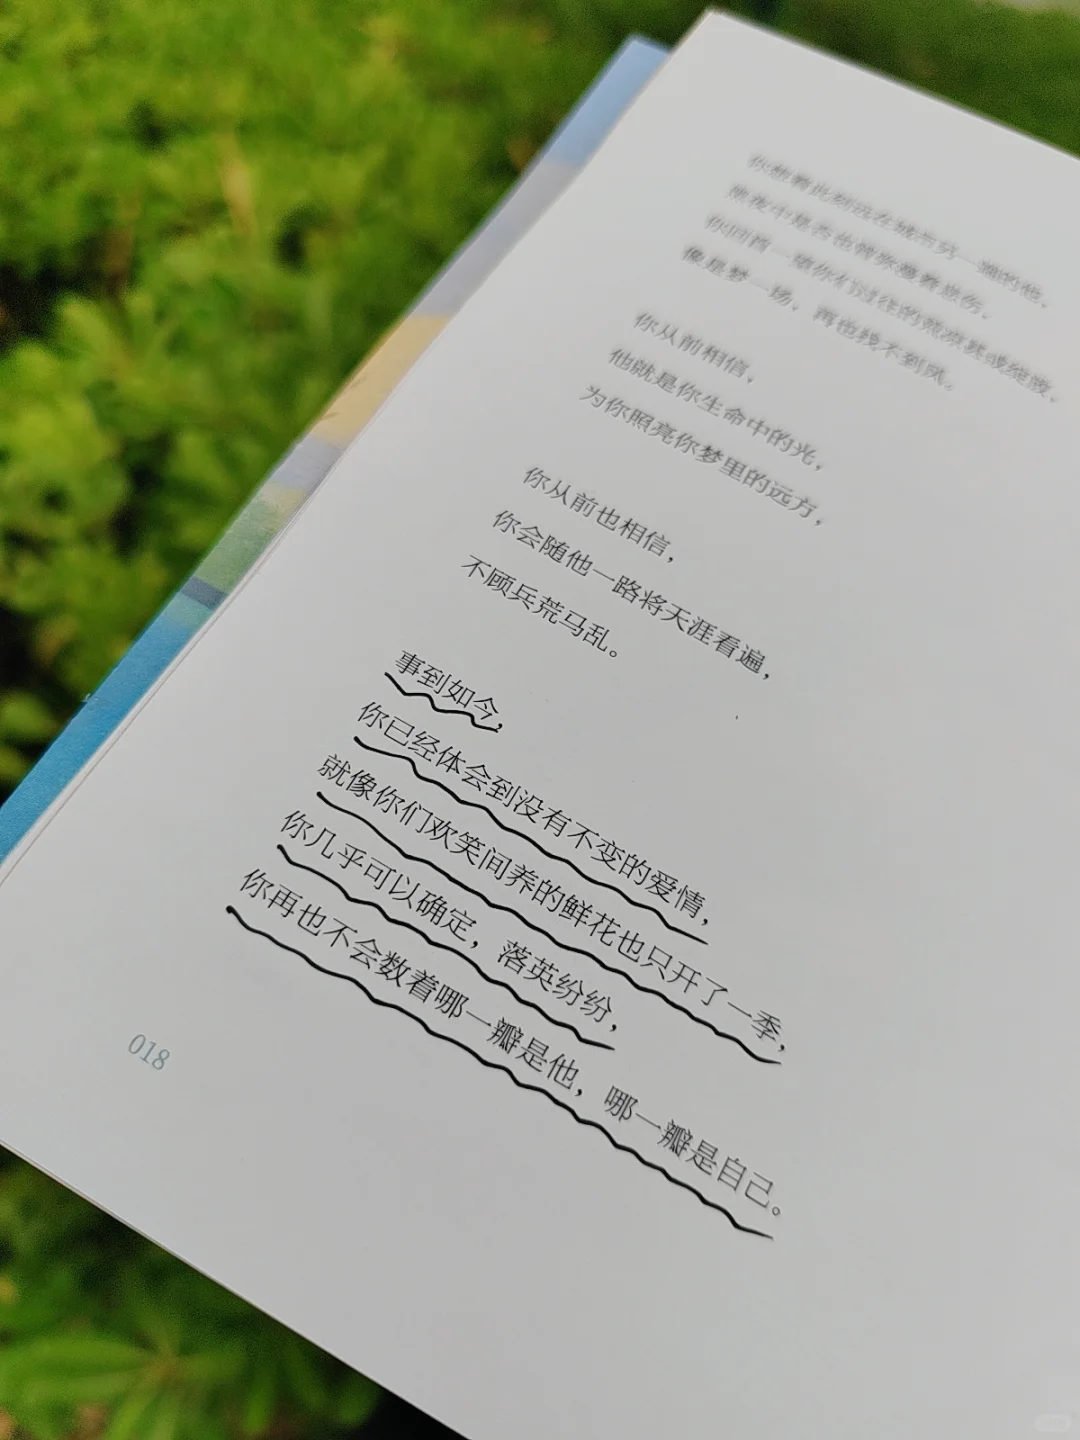 你想着此刻远在城市另一端的他,
你从前相信,
他就是你生命中的光,
为你照亮你梦里的远方,
你从前也相信,
你会随他一路将天涯看遍,
不顾兵荒马乱。
事到如今,
你已经体会到没有不变的爱情,
就像你们欢笑间养的鲜花也只开了一季,
你几乎可以确定,落英纷纷,
你再也不会数着哪一瓣是他,哪一瓣是自己。
018